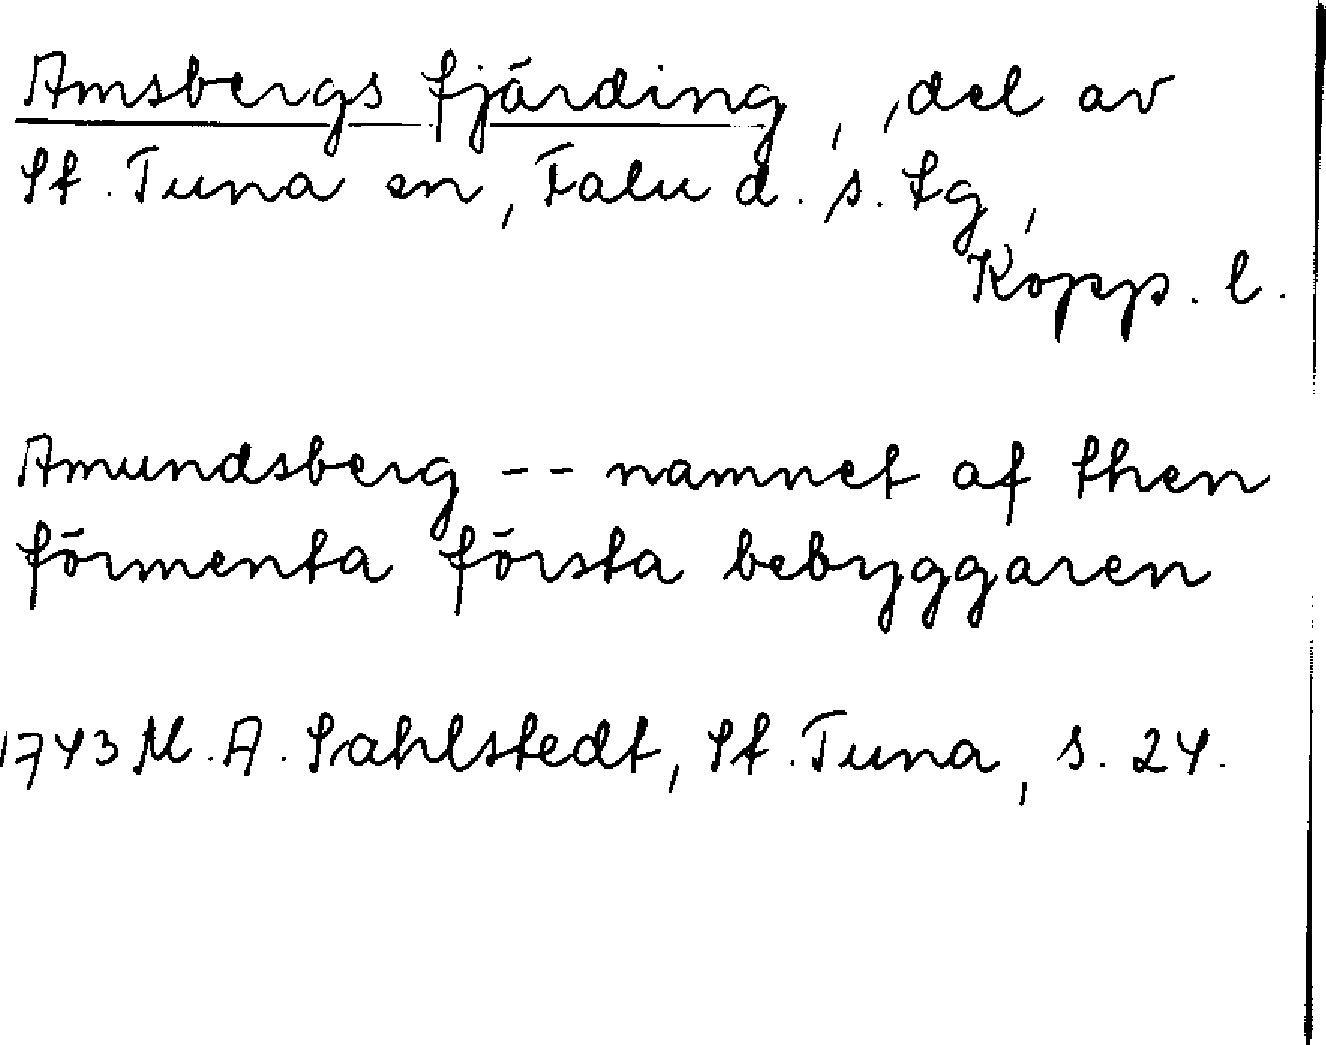 Amsbergs fjärding, , del av
St. Tuna sn, Falu d. s. tg,
Kopp. l.
Amundsberg -- namnet af then
förmenta första bebyggaren
1743 M. A. Sahlstedt, St. Tuna, s. 24.